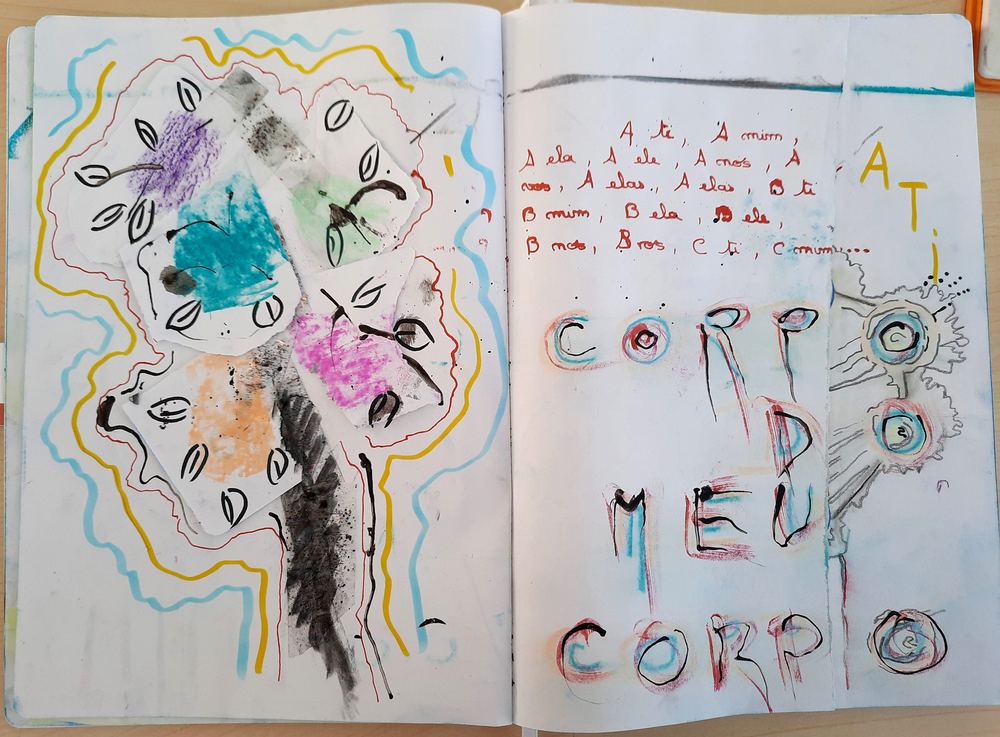 A ti, A mim,
A ela, A ele, A nos, A
vos, A elas, A elas, B ti
B mim, B ela, B ele,
B nos, B vos, C ti, C mim...
A Ti
CORPO
DO
MEU
CORPO